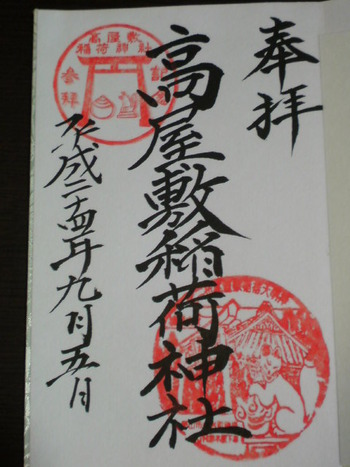 奉拝
高屋敷稲荷神社
平成二十四年九月五月
高屋敷
稲荷神社
参拝
記念